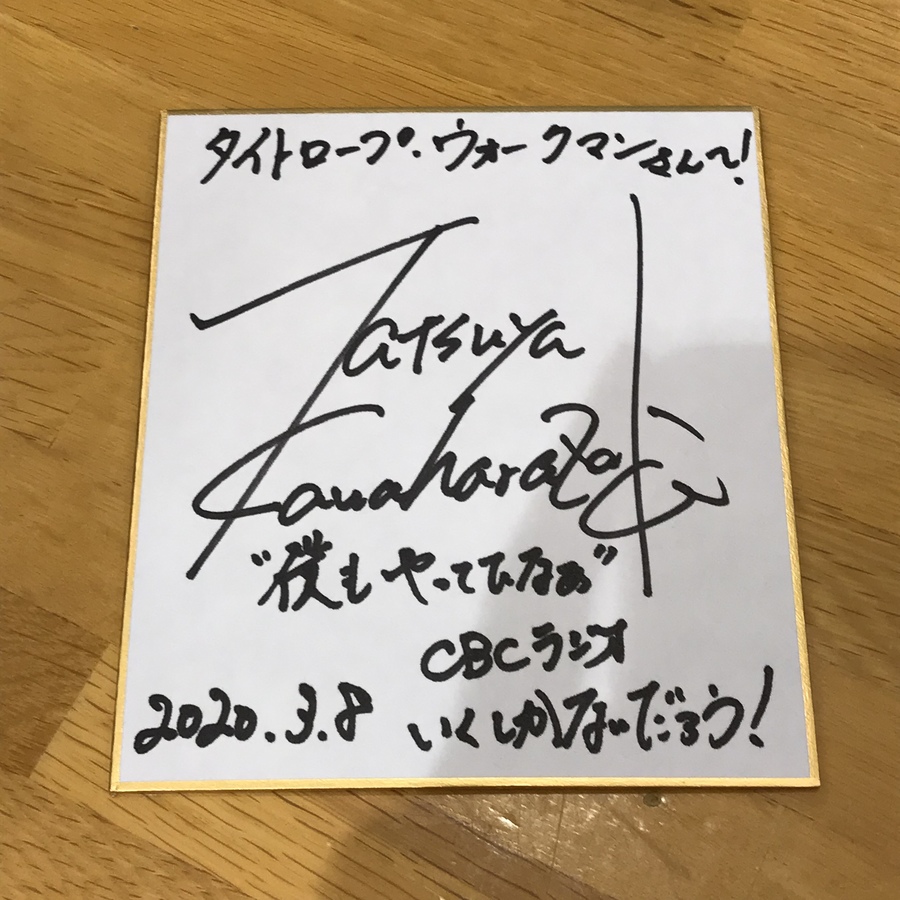 タイトロープ・ウォークマンさんへ!
Tatsuya
Kawaharazaki
"僕もやってたなぁ"
CBCラジオ
2020.3.8 いくしかないだろう!